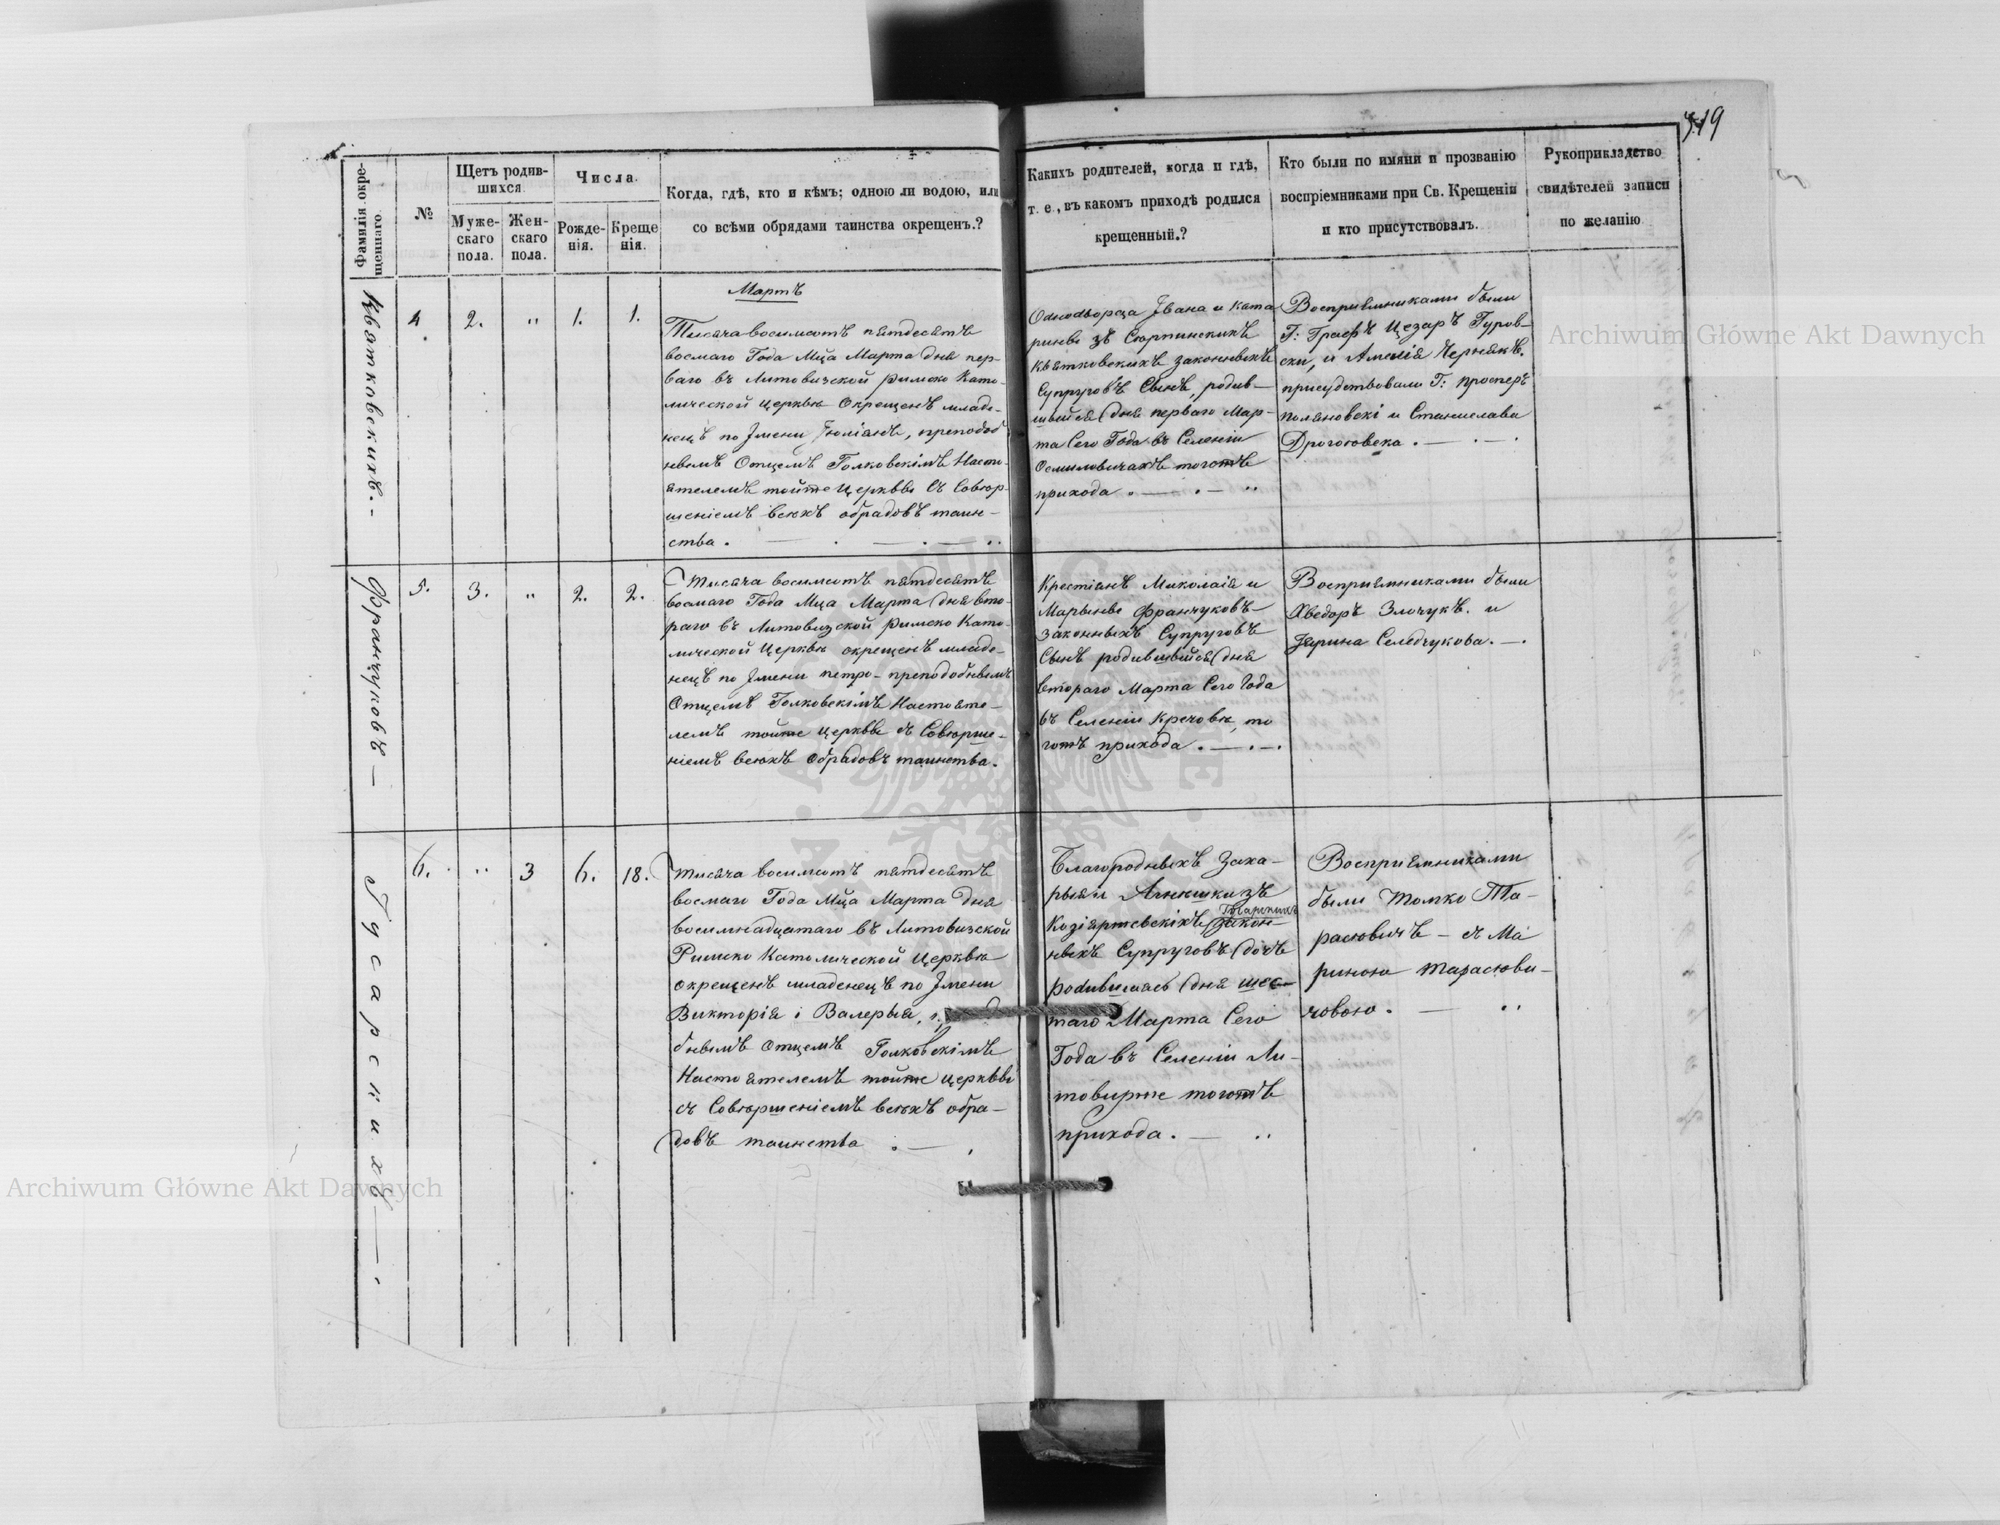 319
Фамилія окре-
щеннаго.
№
Щетъ родив-
шихся.
Муже-
скаго
пола.
Жен-
скаго
пола.
Числа.
Рожде-
нія.
Креще
нія.
Когда, гдѣ, кто и кѣмъ; одною ли водою, или
со всѣми обрядами таинства окрещенъ.?
Какихъ родителей, когда и гдѣ,
т. е., въ какомъ приходѣ родился
крещенный.?
Кто были по имяни и прозванію
воспріемниками при Св. Крещеніи
и кто присутствовалъ.
Рукоприкладство
свидѣтелей записи
по желанію
Квятковскихъ. -
4.
2.
"
1.
1.
Мартъ
Тисяча восимсотъ пятдесятъ
восмаго Года Мца Марта дня пер-
ваго въ Литовизской Римско Като-
лической Церкви Окрещенъ младе-
нецъ по Имени Юліянъ, преподоб
нымъ Отцемъ Голковскімъ Насто-
ятелемъ тойже Церквы съ Совюр-
шеніемъ всюхъ обрадовъ таин-
ства.
Однодворца Ивана и Ката
рины зъ
Квятковскихъ законныхъ
Супруговъ Сынъ, родив-
шыйся дня перваго Мар-
та Сего Года въ Селеніи
Осмиловичахъ тогожъ
прихода
Восприямниками были
Г: Графъ Цезаръ Гуров-
ски, и Амелія Чернякъ.
присудствовали Г: просперъ
поляновскі и Станислава
Дрогоювска.
Франчуковъ -
5.
3.
"
2.
2.
Тисяча восимсотъ пятдесятъ
восмаго Года Мца Марта дня вто-
раго въ Литовизской Римско Като-
лической Церкви окрещенъ младе-
нецъ по Имени петро - преподобнымъ
Отцемъ Голковскімъ Настояте-
лемъ тойже Церквы съ Совюрше-
ніемъ всюхъ Обрадовъ таинства.
Крестіянъ Миколаія и
Марыны Франчуковъ
Законныхъ Супруговъ
Сынъ родившыйся дня
втораго Марта Сего Года
въ Селеніи Кречовя, то
гожъ прихода.
Восприямниками были
Хведоръ Злочукъ. и
Ярина Селедчукова.
Гусарскихъ -
6.
"
3
6.
18.
Тисяча восимсотъ пятдесятъ
восмаго Года Мца Марта дня
восимнадцатаго въ Литовизской
Римско Католической Церквы
окрещенъ младенецъ по Имени
Викторія і Валерыя,
бнымъ Отцемъ Голковскімъ
Настоятелемъ тойже церквы
съ Совюршеніемъ всюхъ обра-
довъ таинства
Благородныхъ Заха-
рыя и Агнешки зъ
Гусарскихъ
закон-
ныхъ Супруговъ дочъ
родившаясь дня шес-
таго Марта Сего
Года въ Селеніи Ли-
товирже тогожъ
прихода.
Восприямниками
были Томко Та-
расювичъ - съ Ма
риною Тарасюви-
човою.
Archiwum Główne Akt Dawnych
Archiwum Główne Akt Dawnych